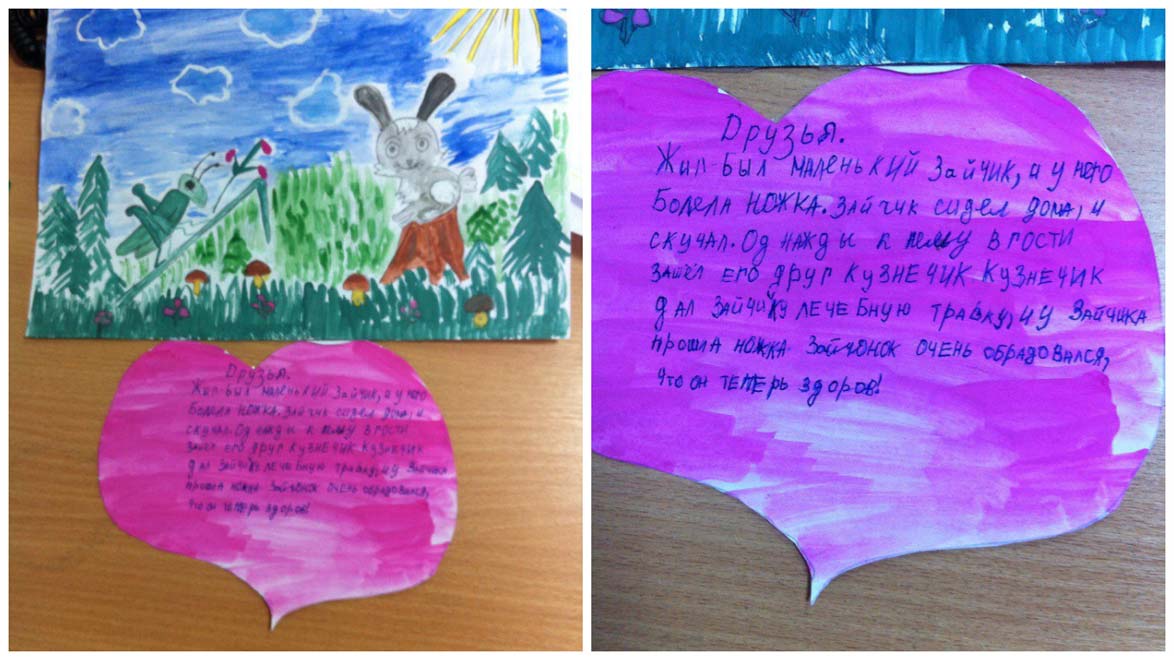 Друзья.
Жил-был маленький Зайчик, а у него
болела ножка. Зайчик сидел дома, и
скучал. Од нажды к нему в гости
зашёл его друг кузнечик. Кузнечик
дал зайчику лечебную травку, и у Зайчика
прошла ножка. Зайчонок очень обрадовался,
что он теперь здоров!
Друзья.
Жил-был маленький Зайчик, а у него
болела ножка. Зайчик сидел дома, и
скучал. Од нажды к нему в гости
зашёл его друг кузнечик. Кузнечик
дал зайчику лечебную травку, и у Зайчика
прошла ножка. Зайчонок очень обрадовался,
что он теперь здоров!